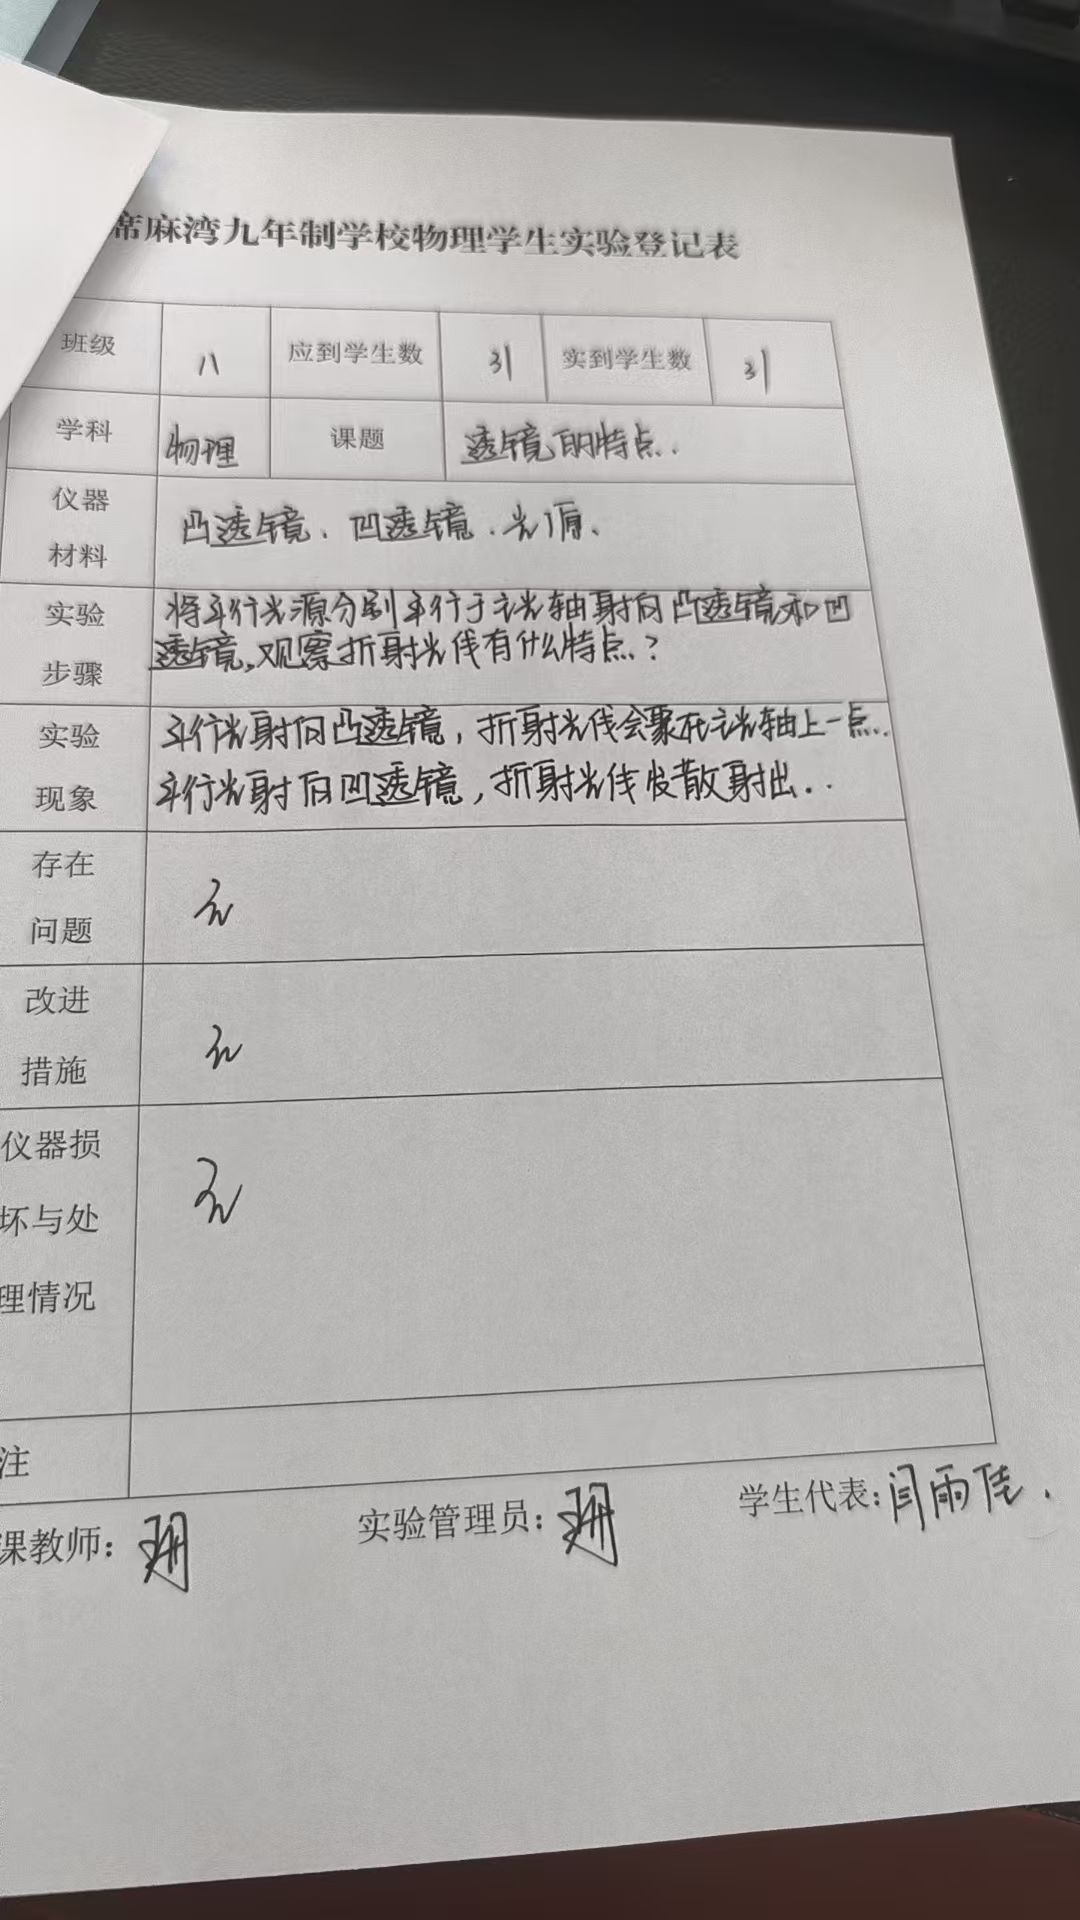 席麻湾九年制学校物理学生实验登记表
班级 八 应到学生数 31 实到学生数 31
学科 物理 课题 透镜的特点.
仪器 材料 凸透镜、凹透镜、光源、
实验 步骤 将平行光源分别平行于主光轴射向凸透镜和凹
透镜,观察折射光线有什么特点?
实验 现象 平行光射向凸透镜,折射光线会聚在主光轴上一点..
平行光射向凹透镜,折射光线发散射出..
存在
问题 无
改进
措施 无
仪器损
坏与处 无
理情况
注
课教师: 实验管理员: 学生代表:闫雨佳.